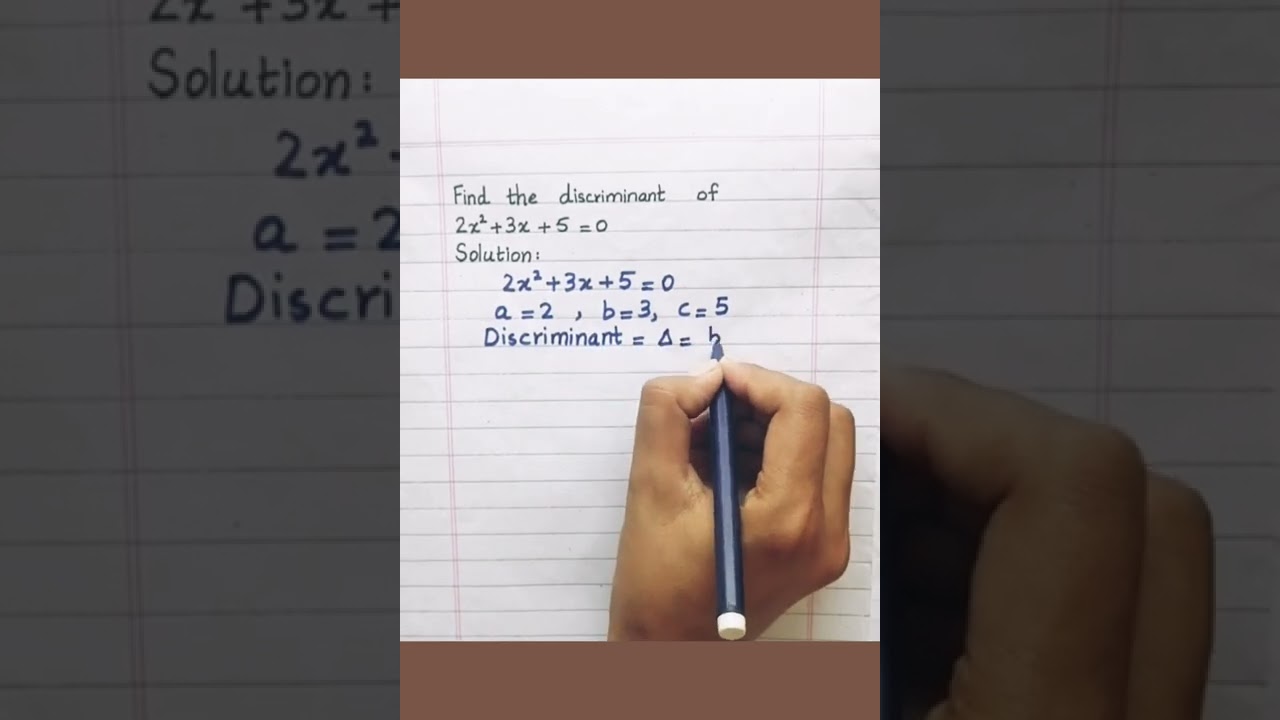 Find the discriminant of
2x²+3x+5=0
Solution:
2x²+3x+5=0
a=2 , b=3, c=5
Discriminant = Δ = b